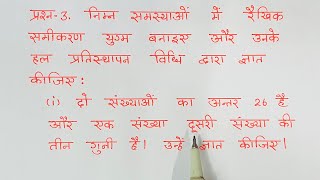 प्रश्न-3. निम्न समस्याओं में रैखिक
समीकरण युग्म बनाइए और उनके
हल प्रतिस्थापन विधि द्वारा ज्ञात
कीजिए :
(i) दो संख्याओं का अन्तर 26 है
और एक संख्या दूसरी संख्या की
तीन गुनी है। उन्हें ज्ञात कीजिए।